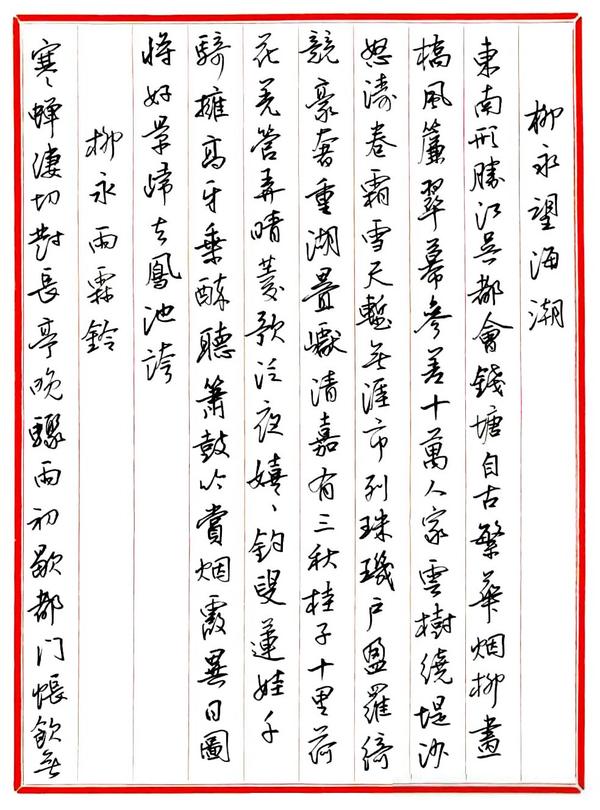 柳永望海潮
東南形勝江吳都會錢塘自古繁華烟柳畫
橋風簾翠幕參差十萬人家雲樹繞堤沙
怒濤卷霜雪天塹無涯市列珠璣戶盈羅綺
競豪奢重湖疊巘清嘉有三秋桂子十里荷
花羌管弄晴菱歌泛夜嬉〻釣叟蓮娃千
騎擁高牙乘醉聽簫鼓吟賞烟霞異日圖
將好景歸去鳳池誇
柳永雨霖鈴
寒〻蟬淒切對長亭晚驟雨初歇都門帳飲無